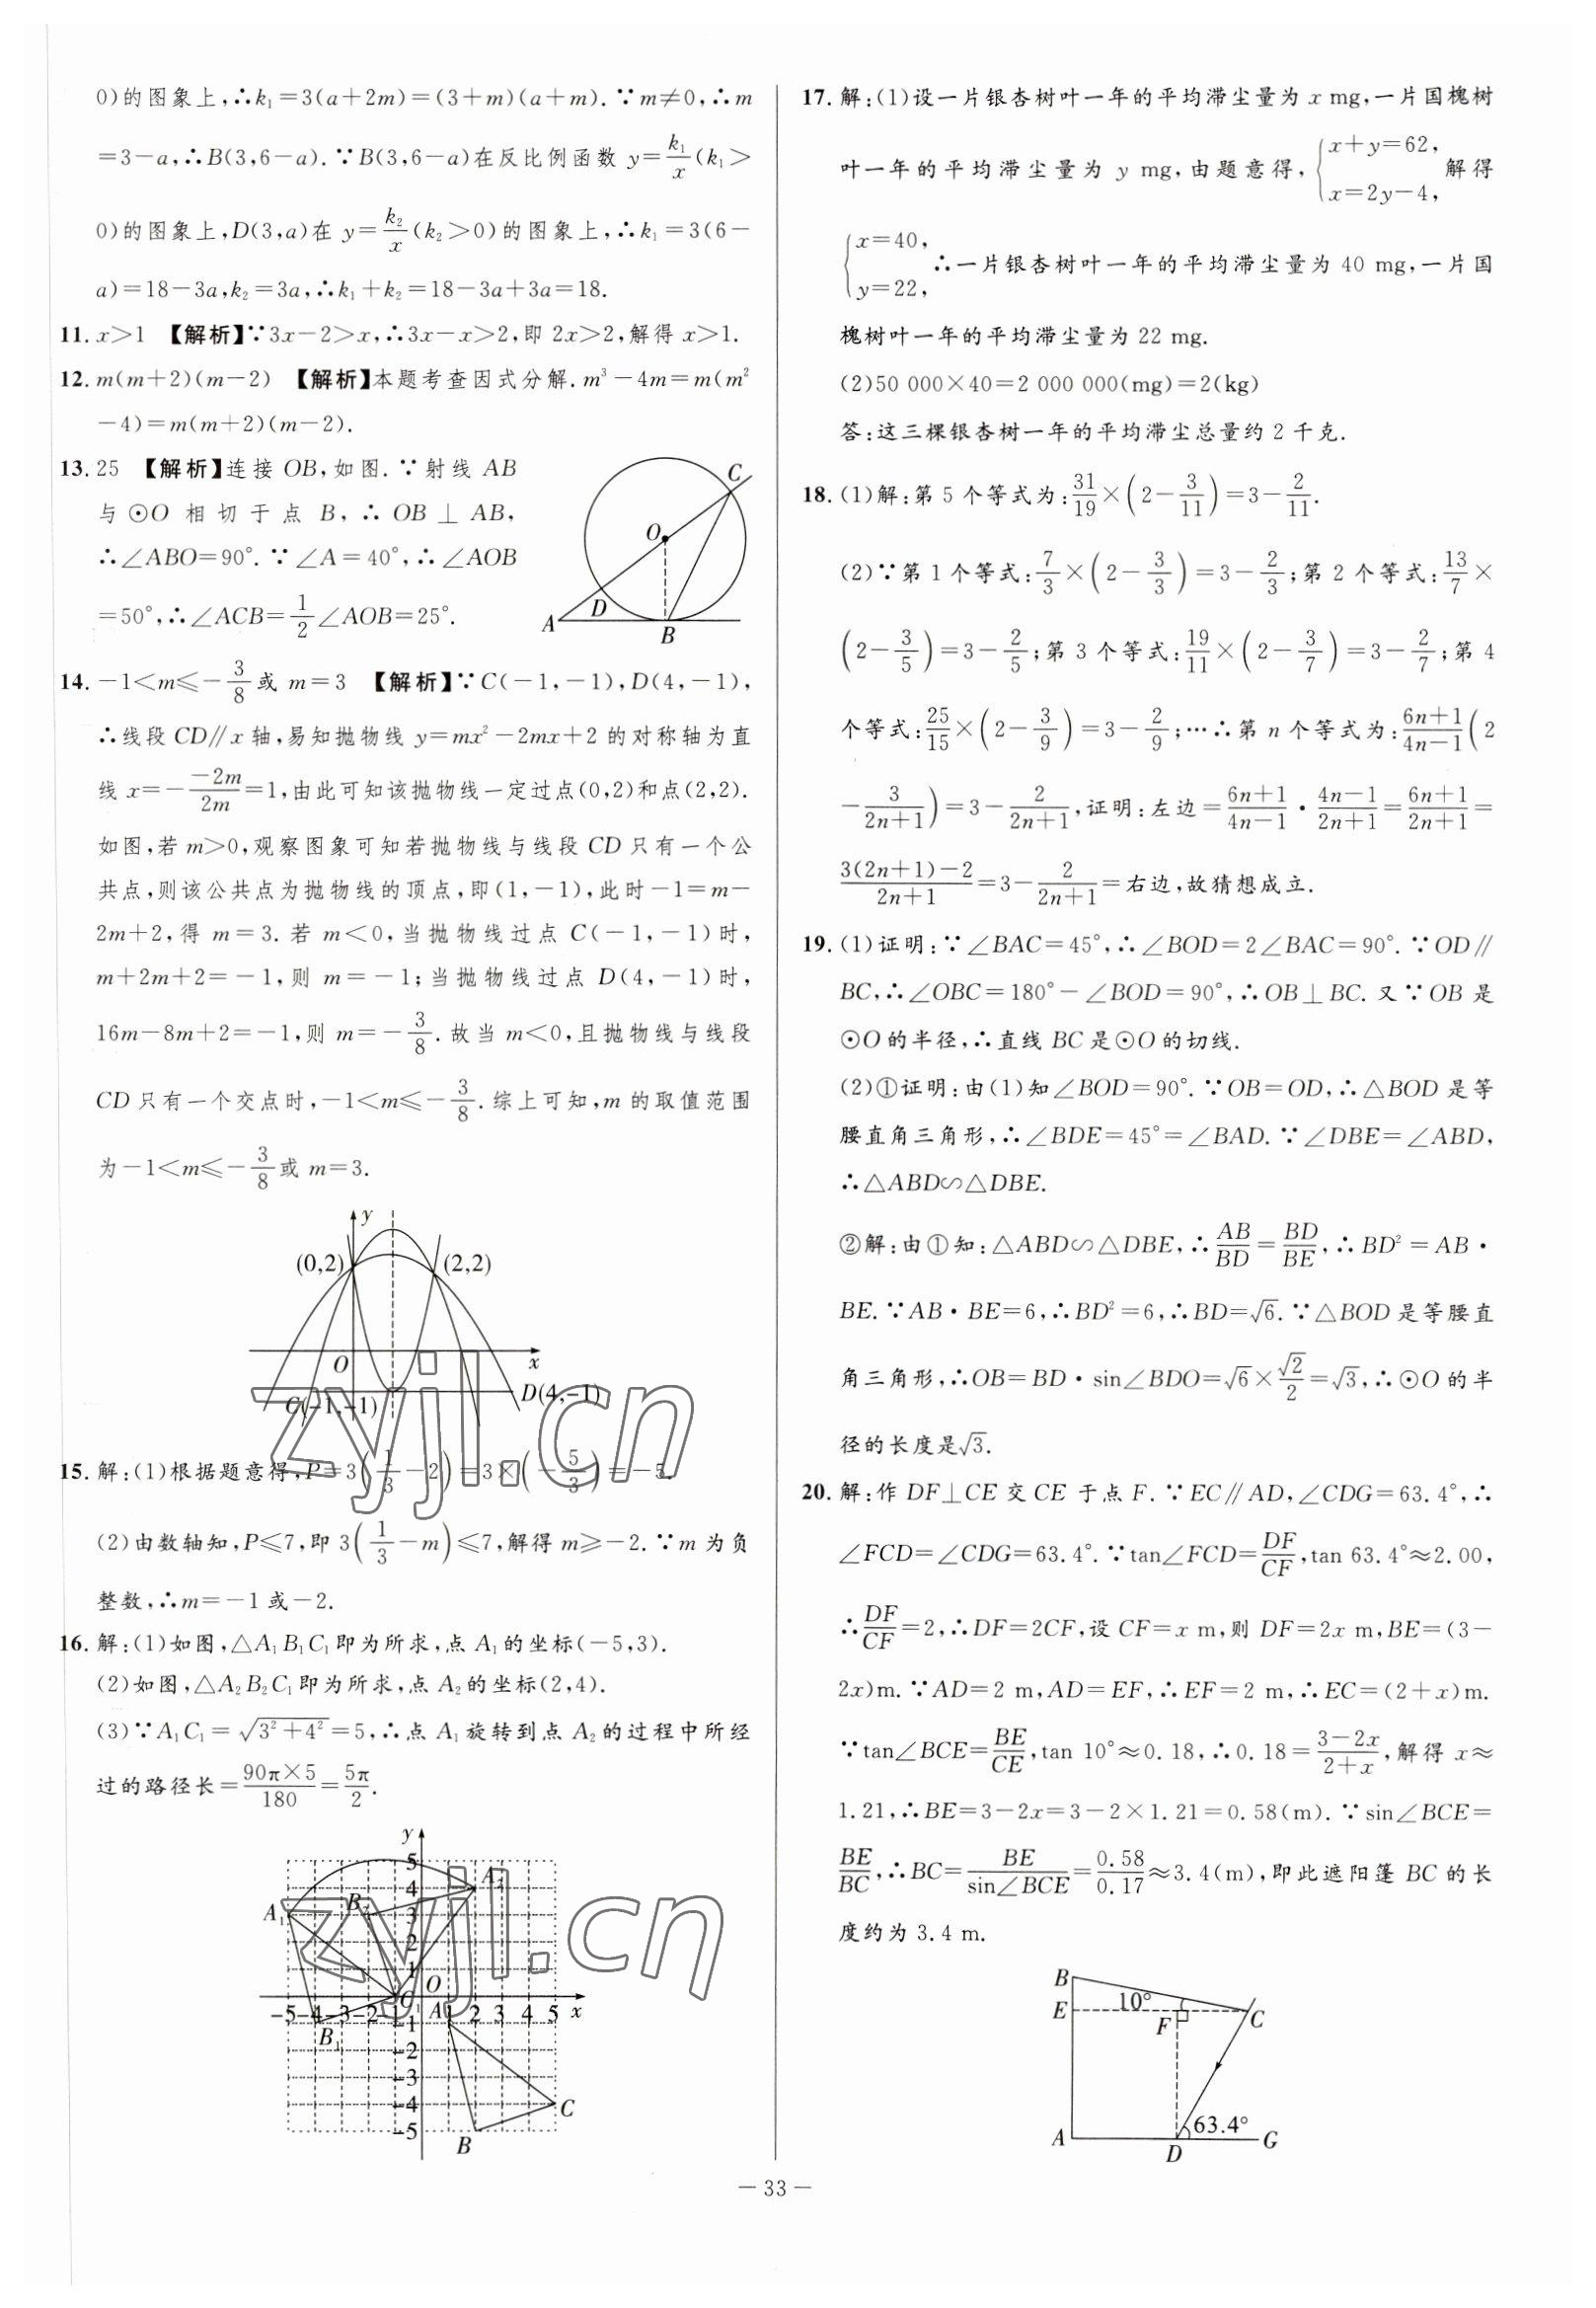 0)的图象上,∴k₁=3(a+2m)=(3+m)(a+m).∵m≠0,∴m
=3-a,∴B(3,6-a).∵B(3,6-a)在反比例函数 y=k₁/x(k₁>
0)的图象上,D(3,a)在 y=k₂/x(k₂>0)的图象上,∴k₁=3(6-
a)=18-3a,k₂=3a,∴k₁+k₂=18-3a+3a=18.
11. x>1 【解析】∵3x-2>x,∴3x-x>2,即 2x>2,解得 x>1.
12. m(m+2)(m-2) 【解析】本题考查因式分解.m³-4m=m(m²
-4)=m(m+2)(m-2).
13. 25 【解析】连接 OB,如图.∵射线 AB
与⊙O 相切于点 B,∴OB⊥AB,
∴∠ABO=90°.∵∠A=40°,∴∠AOB
=50°,∴∠ACB=1/2∠AOB=25°.
C
O
D
A
B
14. -1<m≤-3/8或 m=3 【解析】∵C(-1,-1),D(4,-1),
∴线段 CD∥x 轴,易知抛物线 y=mx²-2mx+2 的对称轴为直
线 x=--2m/2m=1,由此可知该抛物线一定过点(0,2)和点(2,2).
如图,若 m>0,观察图象可知若抛物线与线段 CD 只有一个公
共点,则该公共点为抛物线的顶点,即(1,-1),此时-1=m-
2m+2,得 m=3.若 m<0,当抛物线过点 C(-1,-1)时,
m+2m+2=-1,则 m=-1;当抛物线过点 D(4,-1)时,
16m-8m+2=-1,则 m=-3/8.故当 m<0,且抛物线与线段
CD 只有一个交点时,-1<m≤-3/8.综上可知,m 的取值范围
为-1<m≤-3/8或 m=3.
y
(0,2)
(2,2)
O
x
C(-1,-1)
D(4,-1)
zyjl.cn
15. 解:(1)根据题意得,P=3(1/3-2)=3×(-5/3)=-5.
(2)由数轴知,P≤7,即 3(1/3-m)≤7,解得 m≥-2.∵m 为负
整数,∴m=-1 或-2.
16. 解:(1)如图,△A₁B₁C₁即为所求,点 A₁的坐标(-5,3).
(2)如图,△A₂B₂C₁即为所求,点 A₂的坐标(2,4).
(3)∵A₁C₁=√(3²+4²)=5,∴点 A₁旋转到点 A₂的过程中所经
过的路径长=90π×5/180=5π/2.
y
5
4
3
2
1
A₁
O
-5-4-3-2-1
1 2 3 4 5 x
B₁
A
-1
-2
-3
-4
-5
C
B
zyjl.cn
17. 解:(1)设一片银杏树叶一年的平均滞尘量为 x mg,一片国槐树
叶一年的平均滞尘量为 y mg,由题意得,{x+y=62, x=2y-4, 解得
{x=40, y=22, ∴一片银杏树叶一年的平均滞尘量为 40 mg,一片国
槐树叶一年的平均滞尘量为 22 mg.
(2)50 000×40=2 000 000(mg)=2(kg)
答:这三棵银杏树一年的平均滞尘总量约 2 千克.
18. (1)解:第 5 个等式为:31/19×(2-3/11)=3-2/11.
(2)∵第 1 个等式:7/3×(2-3/3)=3-2/3;第 2 个等式:13/7×
(2-3/5)=3-2/5;第 3 个等式:19/11×(2-3/7)=3-2/7;第 4
个等式:25/15×(2-3/9)=3-2/9;…∴第 n 个等式为:6n+1/4n-1(2
-3/2n+1)=3-2/2n+1,证明:左边=6n+1/4n-1·4n-1/2n+1=6n+1/2n+1=
3(2n+1)-2/2n+1=3-2/2n+1=右边,故猜想成立.
19. (1)证明:∵∠BAC=45°,∴∠BOD=2∠BAC=90°.∵OD∥
BC,∴∠OBC=180°-∠BOD=90°,∴OB⊥BC.又∵OB 是
⊙O 的半径,∴直线 BC 是⊙O 的切线.
(2)①证明:由(1)知∠BOD=90°.∵OB=OD,∴△BOD 是等
腰直角三角形,∴∠BDE=45°=∠BAD.∵∠DBE=∠ABD,
∴△ABD∽△DBE.
②解:由①知:△ABD∽△DBE,∴AB/BD=BD/BE,∴BD²=AB·
BE.∵AB·BE=6,∴BD²=6,∴BD=√6.∵△BOD 是等腰直
角三角形,∴OB=BD·sin∠BDO=√6×√2/2=√3,∴⊙O 的半
径的长度是√3.
20. 解:作 DF⊥CE 交 CE 于点 F.∵EC∥AD,∠CDG=63.4°,∴
∠FCD=∠CDG=63.4°.∵tan∠FCD=DF/CF,tan 63.4°≈2.00,
∴DF/CF=2,∴DF=2CF,设 CF=x m,则 DF=2x m,BE=(3-
2x)m.∵AD=2 m,AD=EF,∴EF=2 m,∴EC=(2+x)m.
∵tan∠BCE=BE/CE,tan 10°≈0.18,∴0.18=3-2x/2+x,解得 x≈
1.21,∴BE=3-2x=3-2×1.21=0.58(m).∵sin∠BCE=
BE/BC,∴BC=BE/sin∠BCE=0.58/0.17≈3.4(m),即此遮阳篷 BC 的长
度约为 3.4 m.
B
10°
E
F
C
63.4°
A
D
G
— 33 —